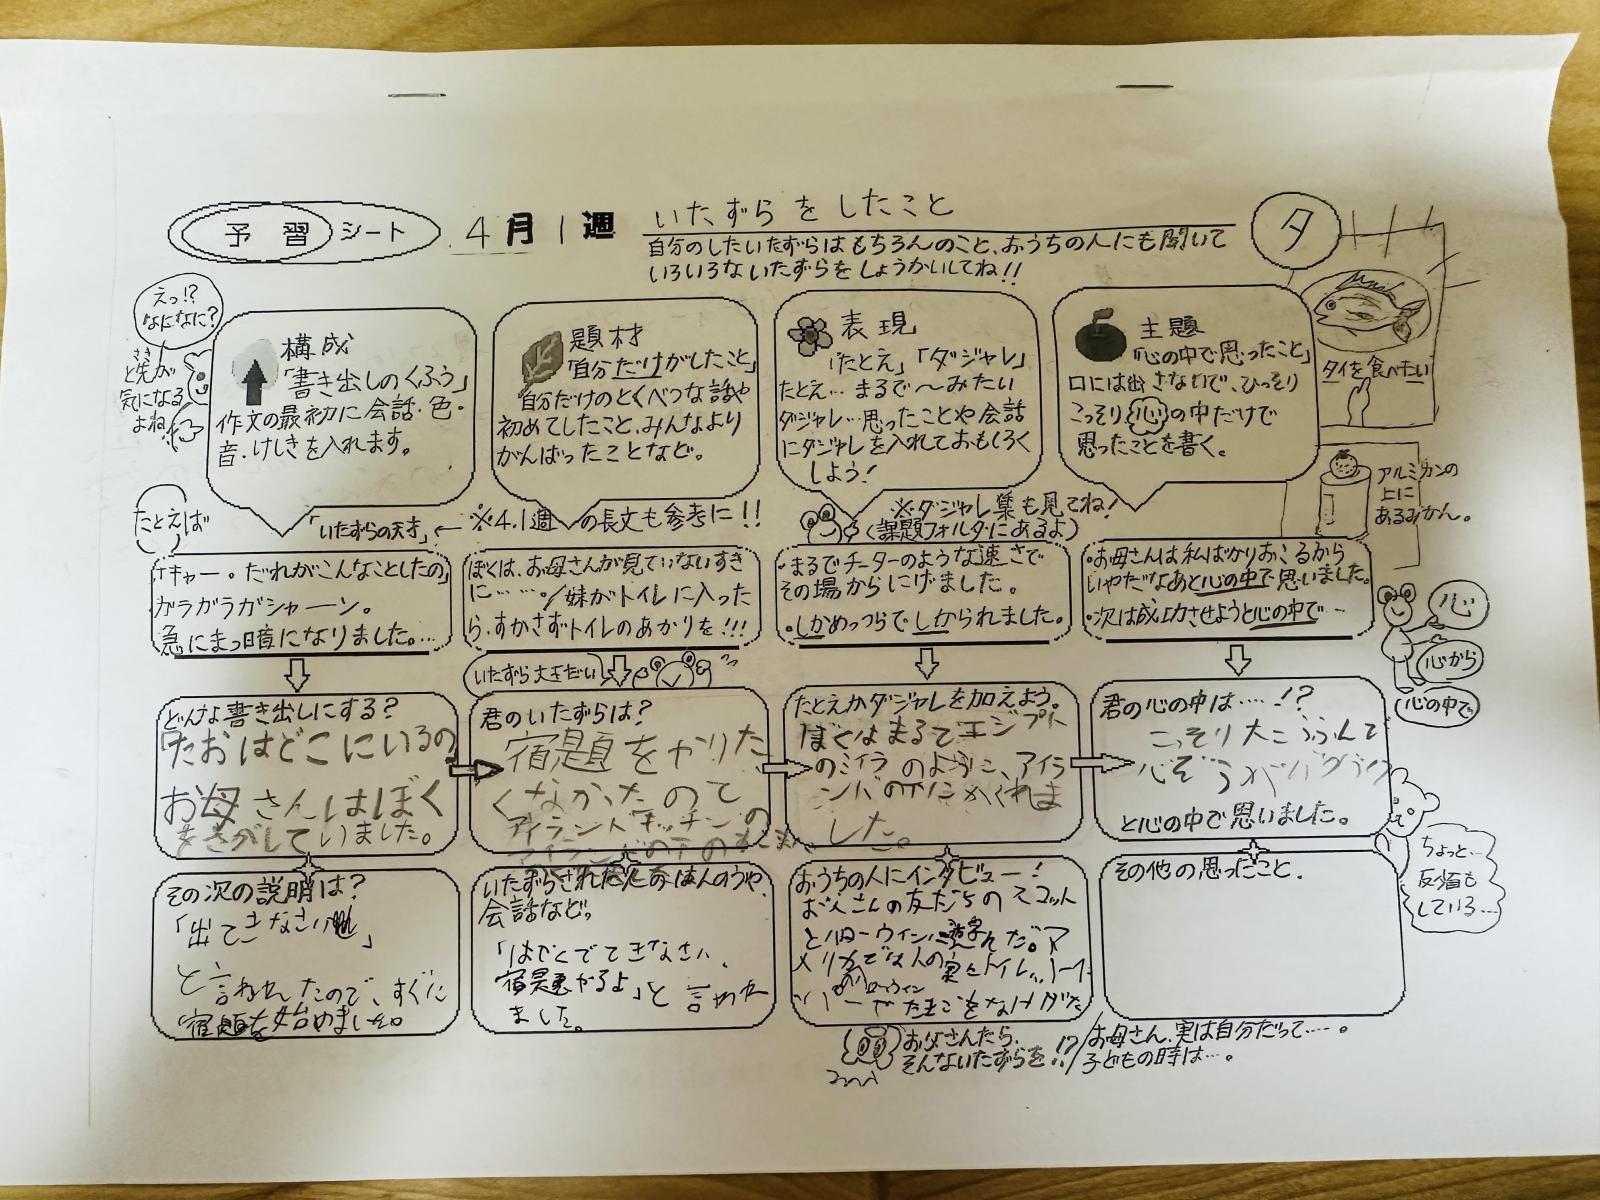 予習シート
4月1週
いたずらをしたこと
タ
自分のしたいたずらはもちろんのこと、おうちの人にも聞いて
いろいろないたずらをしょうかいしてね!!
えっ!?
なになに?
さき
と先が
気になる
よね
構成
「書き出しのくふう」
作文の最初に会話・色・
音・けしきを入れます。
題材
「自分だけがしたこと」
自分だけのとくべつな話や
初めてしたこと、みんなより
がんばったことなど。
表現
「たとえ」「ダジャレ」
たとえ…まるで〜みたい
ダジャレ…思ったことや会話
にダジャレを入れておもしろく
しよう!
主題
「心の中で思ったこと」
口には出さないで、ひっそり
こっそり心の中だけで
思ったことを書く。
タイを食べたい
アルミカンの
上に
あるみかん。
たとえば
「いたずらの天才」←※4.1週の長文も参考に!!
※ダジャレ集も見てね!
(課題フォルダにあるよ)
「キャー。だれがこんなことしたの」
ガラガラガシャーン。
急にまっ暗になりました。…
ぼくは、お母さんが見ていないすき
に……。/妹がトイレに入った
ら、すかさずトイレのあかりを!!!
・まるでチーターのような速さで
その場からにげました。
・しかめっつらでしかられました。
・お母さんは私ばかりおこるから
いやだなあと心の中で思いました。
・次は成功させようと心の中で…
心
心から
心の中で
いたずら大すきだい
どんな書き出しにする?
「たおはどこにいるの
お母さんはぼく
をさがしていました。
君のいたずらは?
宿題をやりた
くなかったので
アイランドキッチンの
たとえかダジャレを加えよう。
ぼくはまるでエジプト
のミイラのように、アイラ
ンドの下にかくれま
した。
君の心の中は……!?
こっそり大こうふんで
心ぞうがバクバク
と心の中で思いました。
その次の説明は?
「出てきなさい」
と言われたので、すぐに
宿題を始めました。
いたずらされた人のはんのうや、
会話など。
「はやくでてきなさい、
宿題やるよ」と言われ
ました。
おうちの人にインタビュー!
お父さんの友だちのスコット
とハローウィンに遊んだ。ア
メリカでは人の家をトイレットペー
ハローウィン
たまごをなげた
その他の思ったこと.
ちょっと…
反省も
している…
お父さんたら、
そんないたずらを!?
お母さん、実は自分だって……。
子どもの時は…。